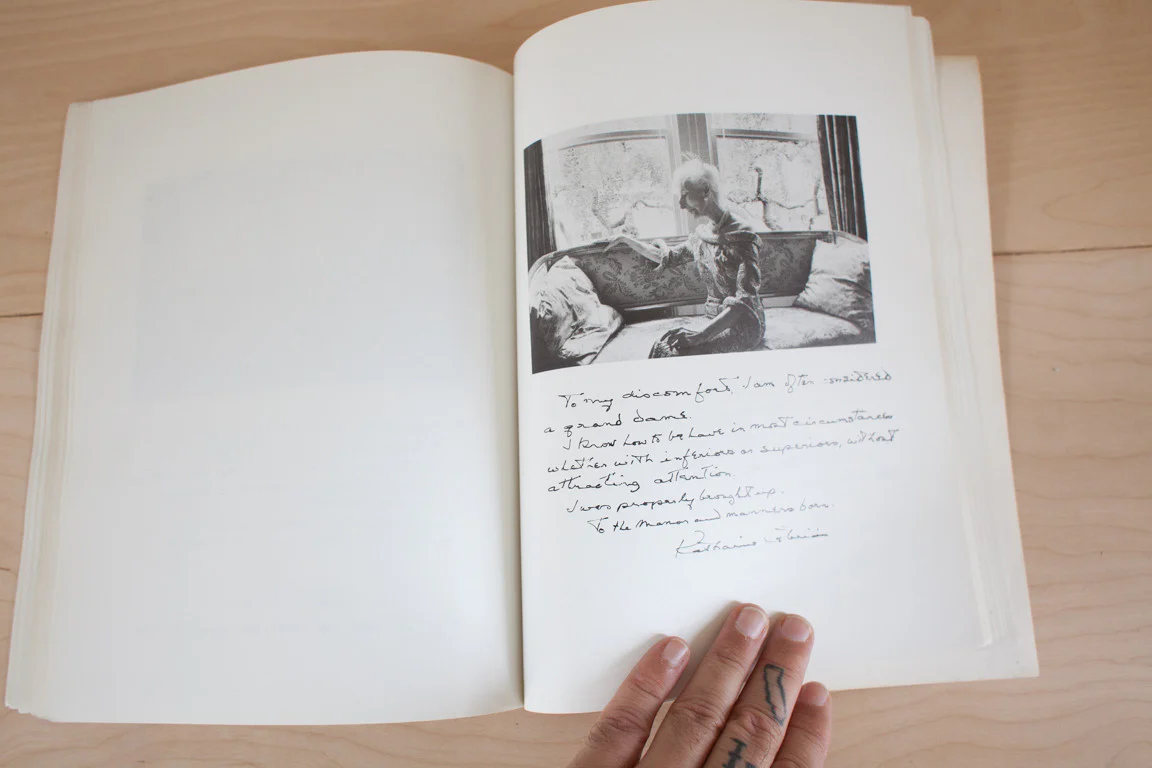 To my discomfort, I am often considered
a grand dame.
I know how to behave in most circumstances
whether with inferiors or superiors, without
attracting attention.
I was properly brought up.
To the Manor and manners born.
Katharine